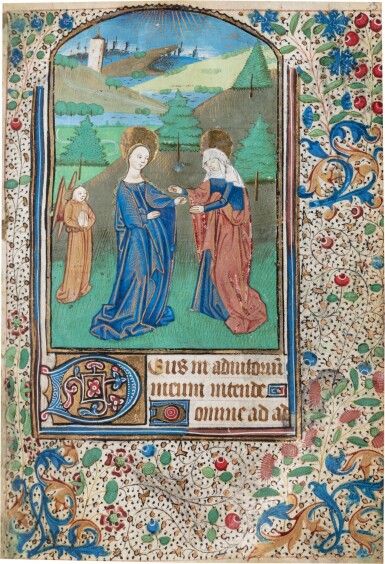 Deus in adiutorium
meum intende
omine ad ad